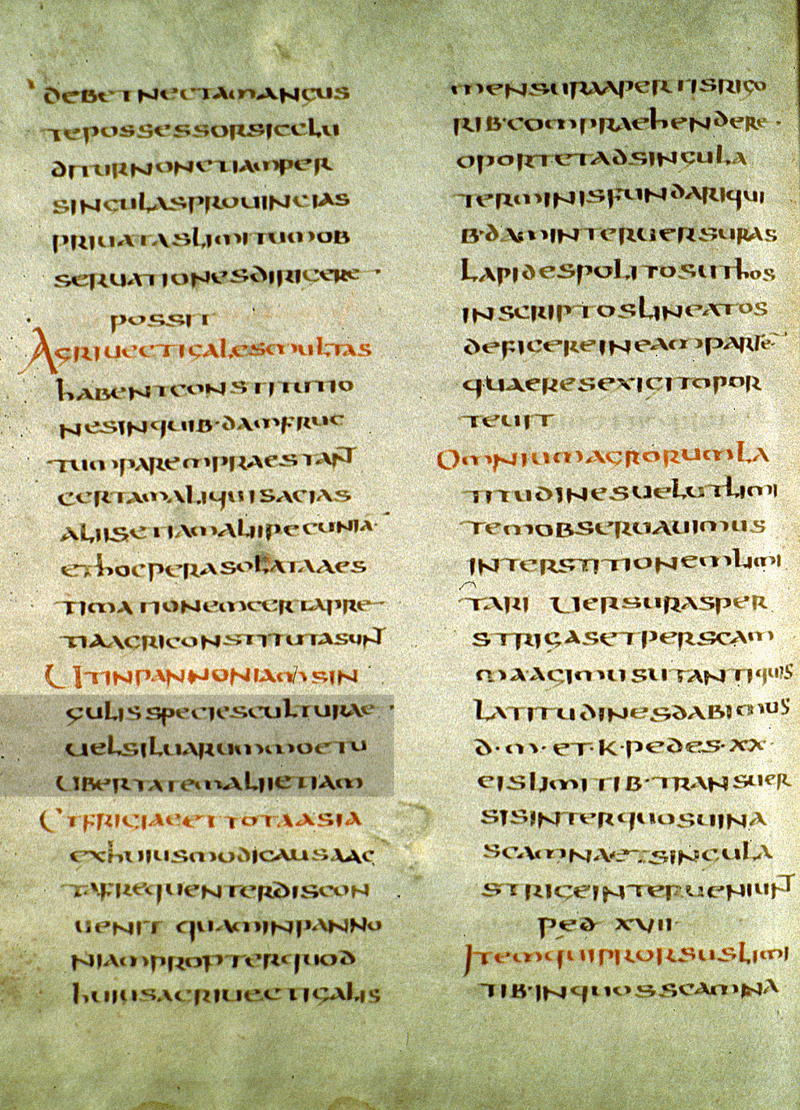 debetnectamangus
tepossessorsiccLu
diturnonetiamper
singulasprouincias
priuataslimitumob
seruationesdirigere·
possit
Agriuectigalesmultas
habentconstitutio
nesinquib·damfruc
tumparempraestant
certamaliquisagias
aliisetiamaliipecunia·
ethocperasolataaes
timationemcertapre
tiaagriconstitutasunt
Utinpannoniamsin
gulisspeciesculturae·
uelsiluarummoetu
ubertatemaliietiam
Etfrigiaeettotaasia
exhuiusmodicausaac
tafrequenterdiscon
uenit quaminpanno
niampropterquod
huiusagriuectigalis
mensuraapertisrigo
rib·compraehendere·
oportetadsingula
terminisfundariqui
b·daminteruersuras
lapidespolitosuthos
inscriptoslineatos
deficereineampartē
quaeresexigitopor
teuit
Omniumagrorumla
titudinesuelutlimi
temobseruauimus
interstitionemlimi
tari Uersurasper
strigasetperscam
maagimusutantiquis
latitudinesdabimus
d·m·et·k·pedes·xx·
eislimitib·transuer
sisinterquosuina
scamnaetsingula
strigeinterueniunt
ped xvii
Itemquiprorsuslimi
tib·inquosscamna